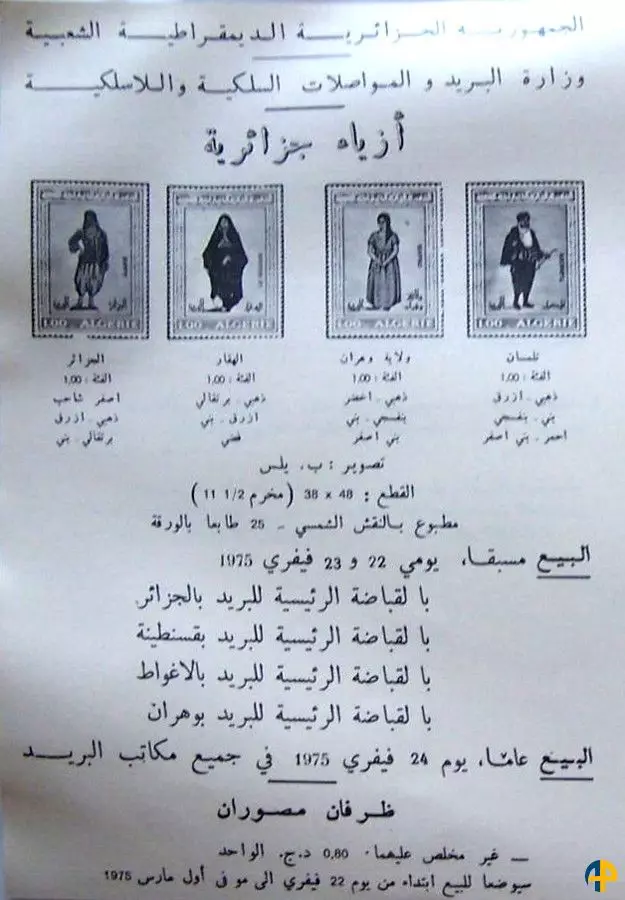 الجمهورية الجزائرية الديمقراطية الشعبية
وزارة البريد و المواصلات السلكية واللاسلكية
أزياء جزائرية
1.00 ALGERIE
1.00 ALGERIE
1.00 ALGERIE
1.00 ALGERIE
تلمسان
الفئة : 1,00
ذهبي ـ ازرق
بني ـ بنفسجي
احمر ـ بني اصفر
ولاية وهران
الفئة : 1,00
ذهبي ـ اخضر
بنفسجي ـ بني
بني اصفر
الهقار
الفئة : 1,00
ذهبي ـ برتقالي
ازرق ـ بني
فضي
الجزائر
الفئة : 1,00
اصفر شاحب
ذهبي ـ ازرق
برتقالي ـ بني
تصوير : ب. يلس
القطع : 48 x 38 (مخرم 1/2 11)
مطبوع بالنقش الشمسي ـ 25 طابعا بالورقة
البيع مسبقا، يومي 22 و 23 فيفري 1975
با لقباضة الرئيسية للبريد بالجزائر
با لقباضة الرئيسية للبريد بقسنطينة
با لقباضة الرئيسية للبريد بالاغواط
با لقباضة الرئيسية للبريد بوهران
البيع عاما، يوم 24 فيفري 1975 في جميع مكاتب البريد
ظرفان مصوران
ـ غير مخلص عليهما 0,80 د.ج. الواحد
سيوضعا للبيع ابتداء من يوم 22 فيفري الى مو فى أول مارس 1975